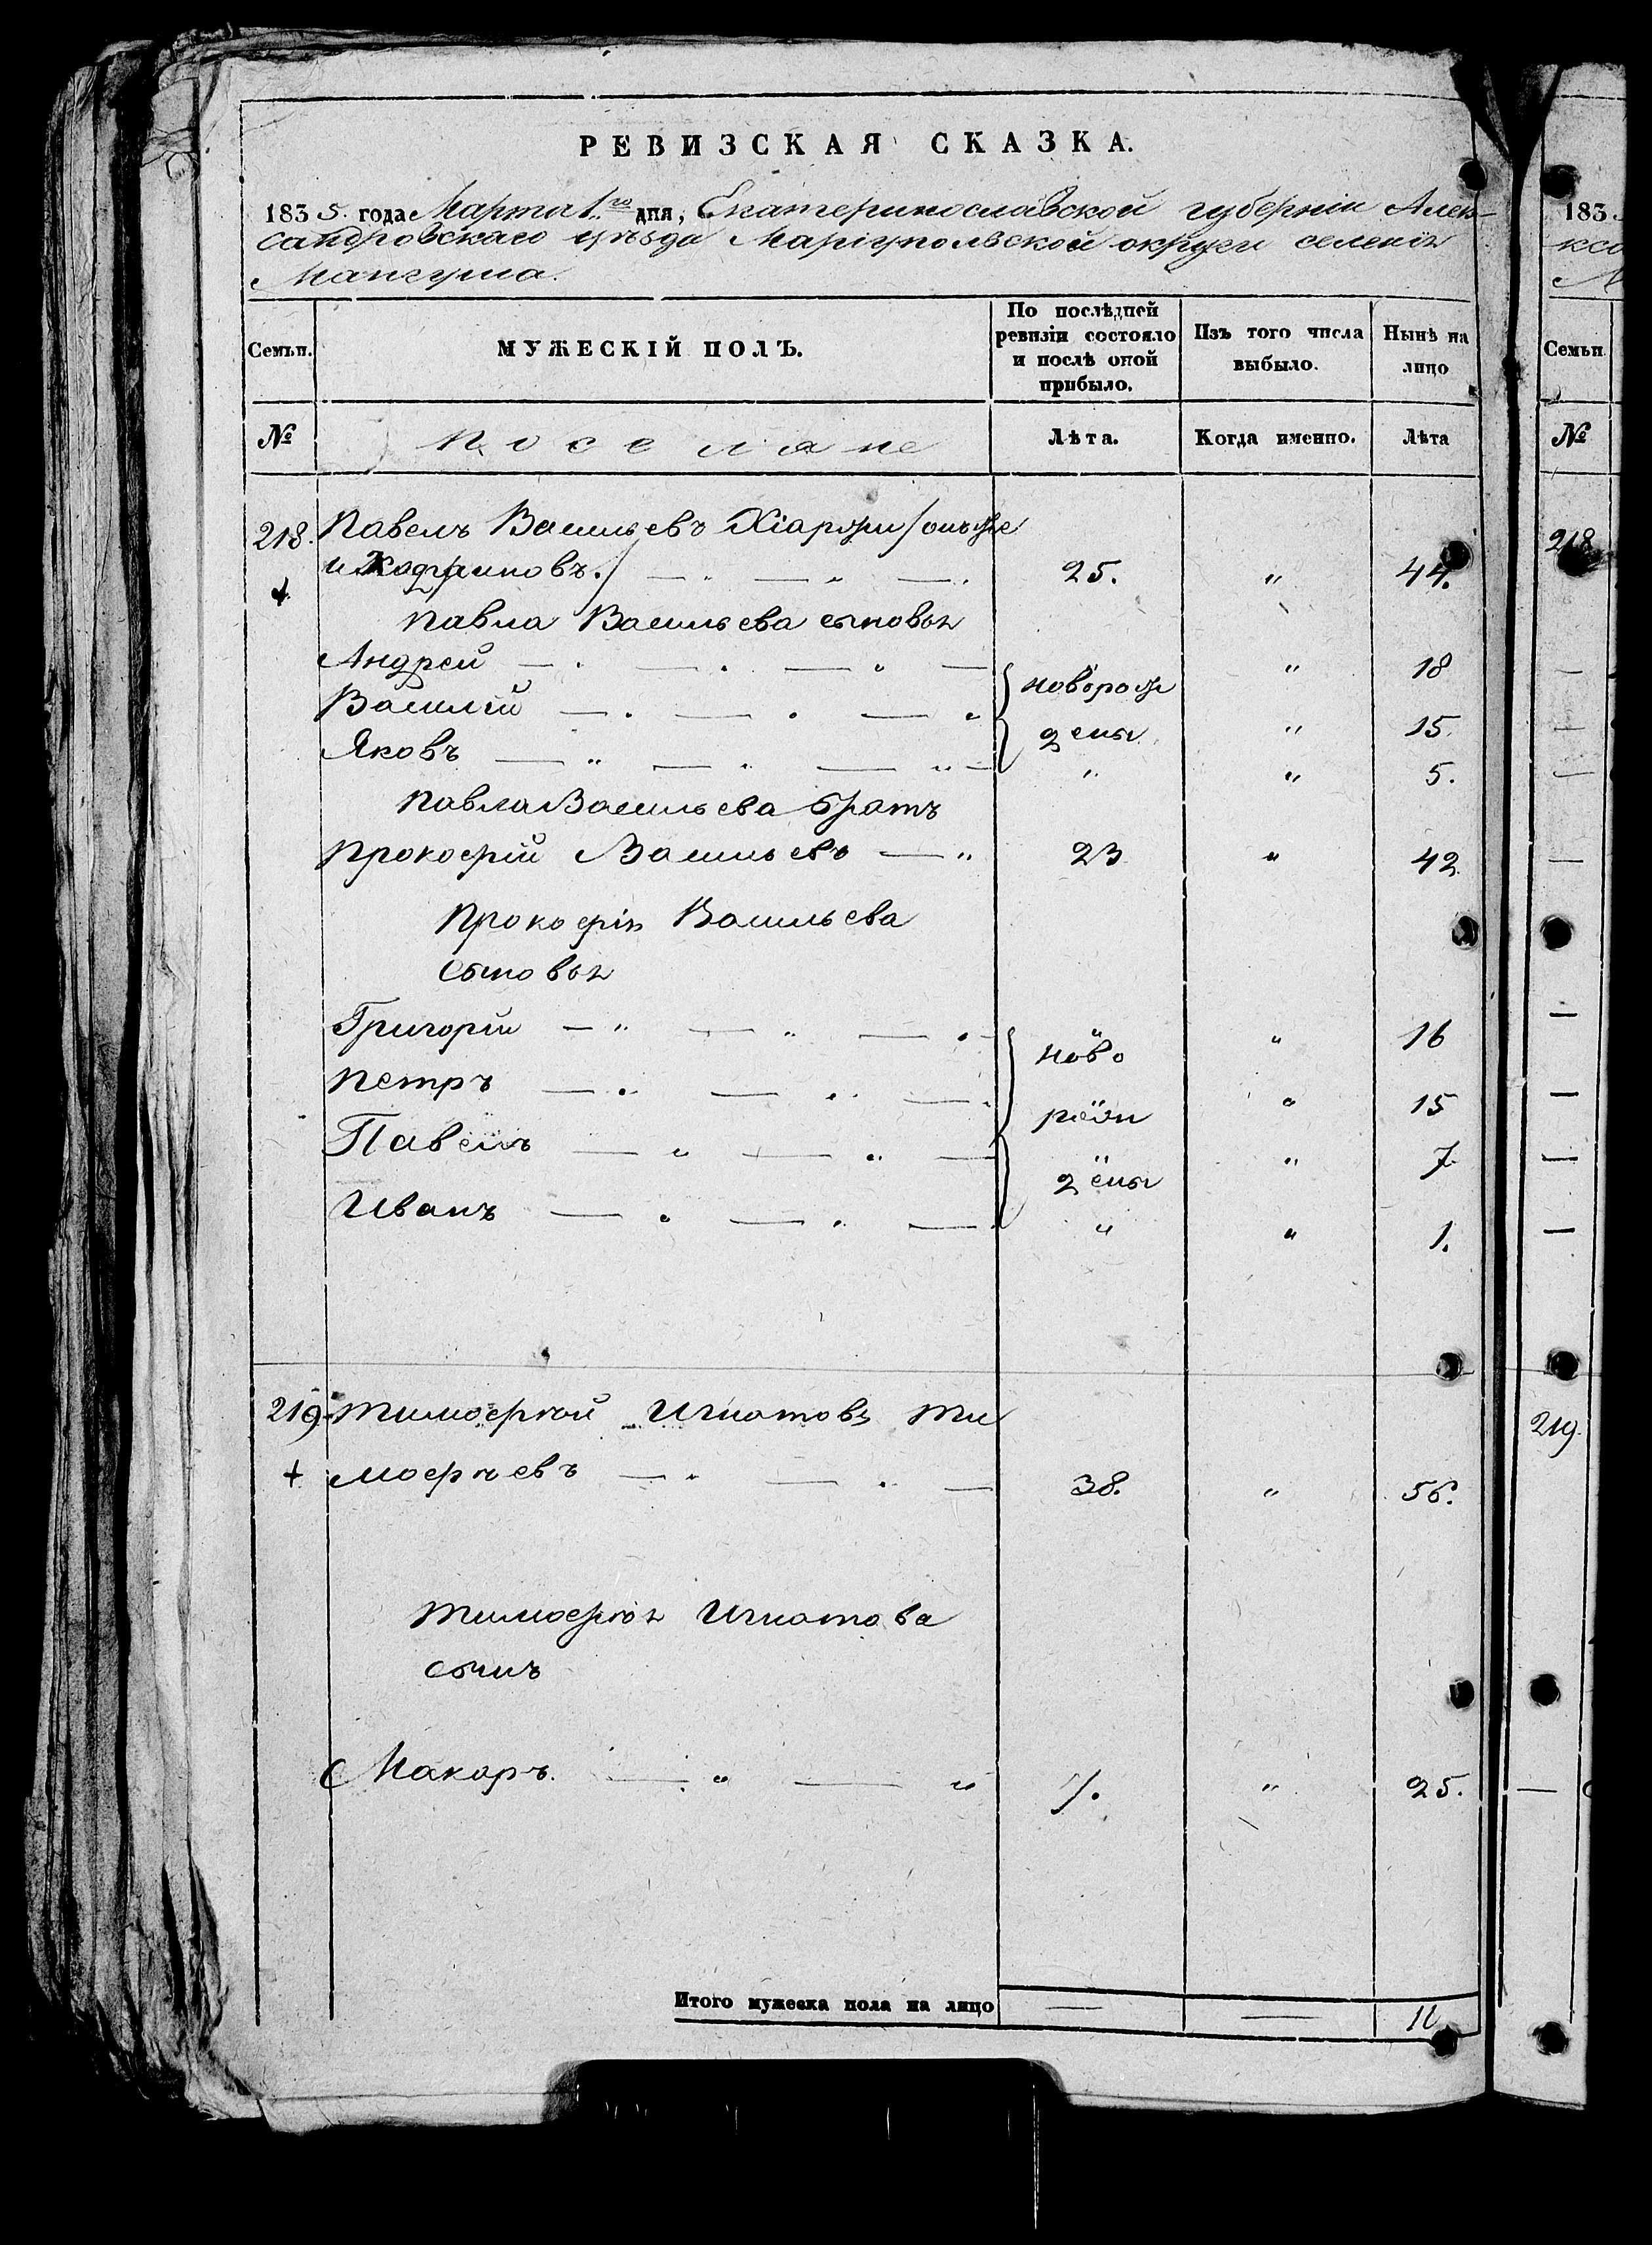 РЕВИЗСКАЯ СКАЗКА.
1835. года Марта 1го дня, Екатеринославской губерніи Алек-
сандровскаго уѣзда Маріупольской округи селенія
Мангуша.
Семьи.
МУЖЕСКІЙ ПОЛЪ.
По послѣдней
ревизіи состояло
и послѣ оной
прибыло.
Изъ того числа
выбыло.
Нынѣ на
лицо
Семьи
№
поселяне
Лѣта.
Когда именно.
Лѣта
№
218. Павелъ Васильевъ /онъ же
и 25. " 44. 218
Павла Васильева сыновья
Андрей " 18
Василій новорож " 15.
Яковъ дены " " 5.
Павла Васильева братъ
Прокофій Васильевъ 23 " 42
Прокофія Васильева
сыновья
Григорій ново " 16
Петръ рож " 15
Павелъ дены " 7
Иванъ " " 1.
219. Тимофей Игнатовъ Ти 219.
мофеевъ 38. " 56.
Тимофея Игнатова
сынъ
Макаръ. 7. " 25.
Итого мужеска пола на лицо